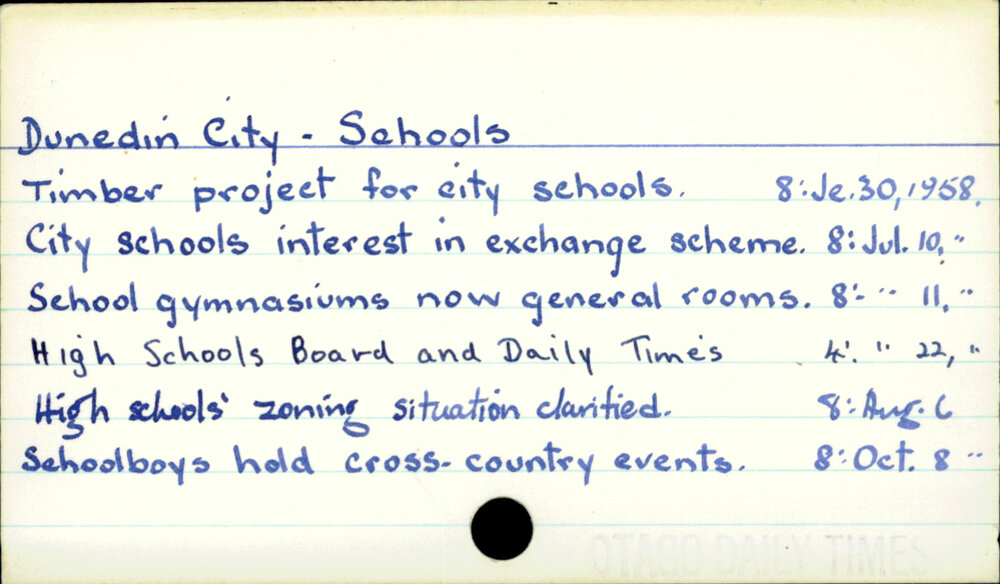 Dunedin City - Schools
Timber project for city schools. 8:Je.30,1958.
City schools interest in exchange scheme. 8:Jul.10,"
School gymnasiums now general rooms. 8:- " 11,"
High Schools Board and Daily Times 4: " 22,"
High schools' zoning situation clarified. 8:Aug.6
Schoolboys hold cross-country events. 8:Oct. 8 "
OTAGO DAILY TIMES